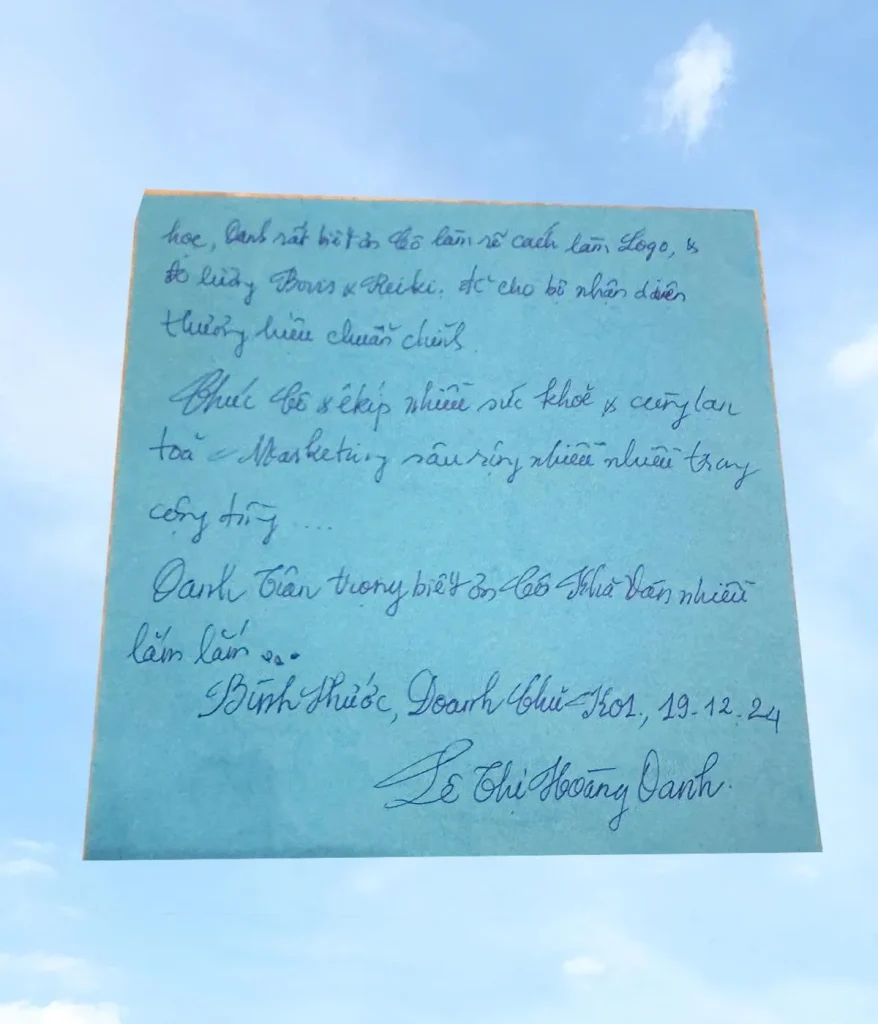 học, Oanh rất biết ơn Cô làm rõ cách làm Logo, &
đo lường Bovis & Reiki. để cho bộ nhận diện
thương hiệu chuẩn chỉnh.
Chúc Cô & êkíp nhiều sức khoẻ & cùng lan
toả Marketing sâu rộng nhiều nhiều trong
cộng đồng ...
Oanh Trân trọng biết ơn Cô Khả Vân nhiều
lắm lắm ...
Bình Phước, Doanh Chủ KOL, 19.12.24
Lê Thị Hoàng Oanh.